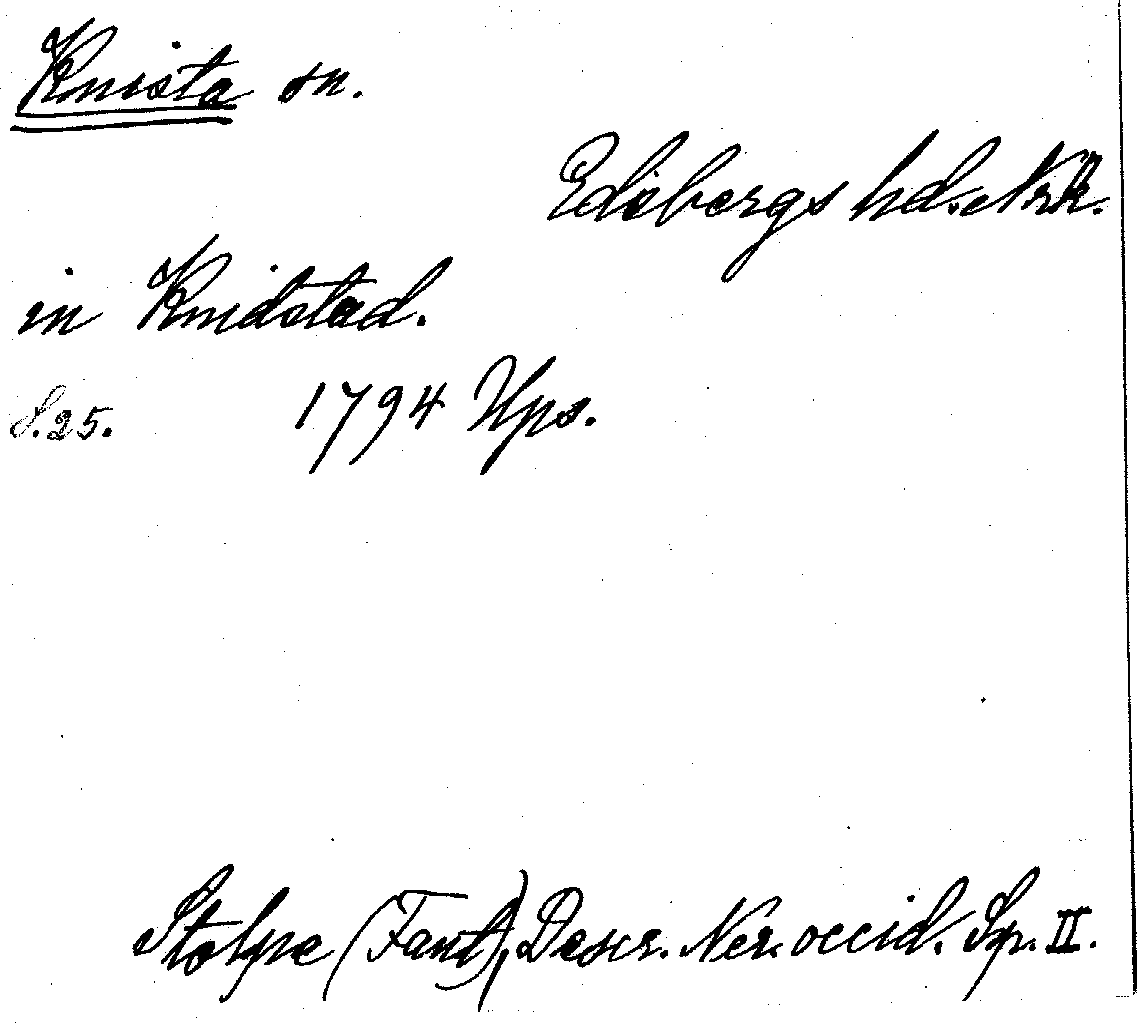 Knista sn.
Edsbergs hd. Nrk.
in Knidstad.
S. 25. 1794 Ups.
Stolpe (Fant), Descr. Ner. occid. Sp. II.